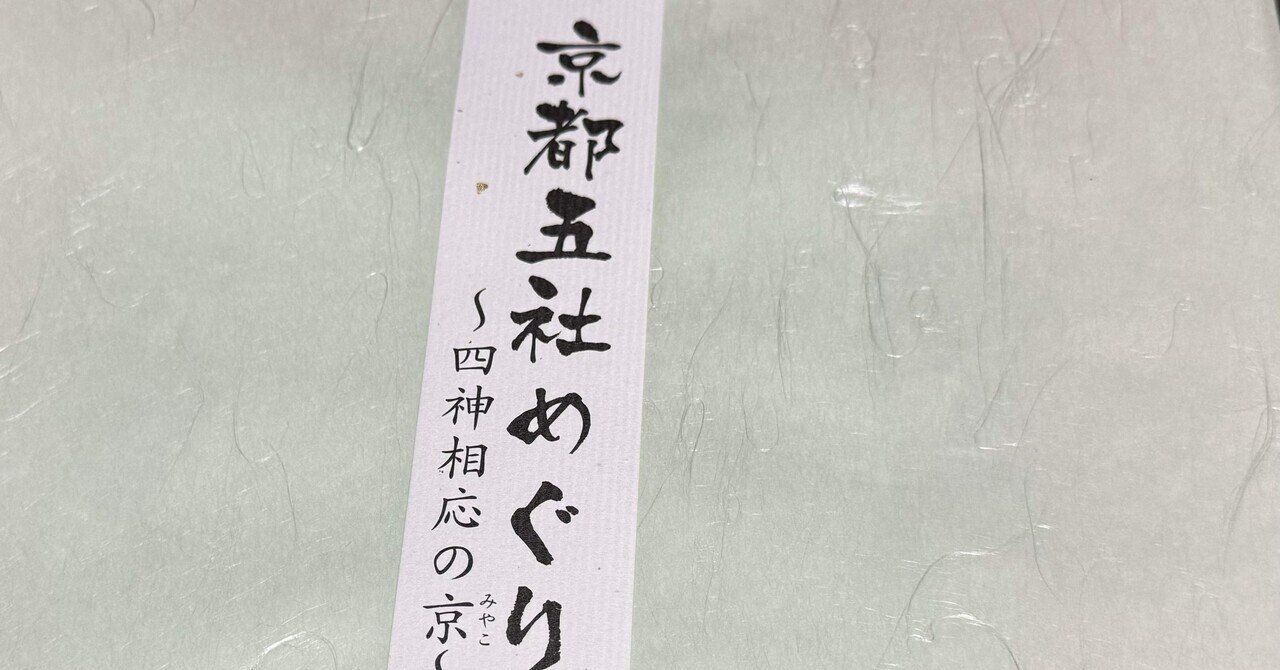 京都五社めぐり
〜四神相応の京〜
みやこ